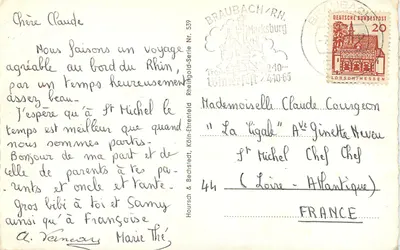 Chère Claude
Nous faisons un voyage
agréable au bord du Rhin,
par un temps heureusement
assez beau.
J'espère qu'à St Michel le
temps est meilleur que quand
nous sommes partis.
Bonjour de ma part et de
celle de parents à tes pa-
rents et oncle et tante.
Gros bibi à toi et Samy
ainsi qu'à Françoise
Marie Thé
Hoursch & Bechstedt, Köln-Ehrenfeld Rheingold-Serie Nr. 539
BRAUBACH/RH.
DEUTSCHE BUNDESPOST
20
LORSCH/HESSEN
Mademoiselle Claude Courgeon
"La Cigale" Ave Ginette Neveu
St Michel Chef Chef
44 (Loire-Atlantique)
FRANCE